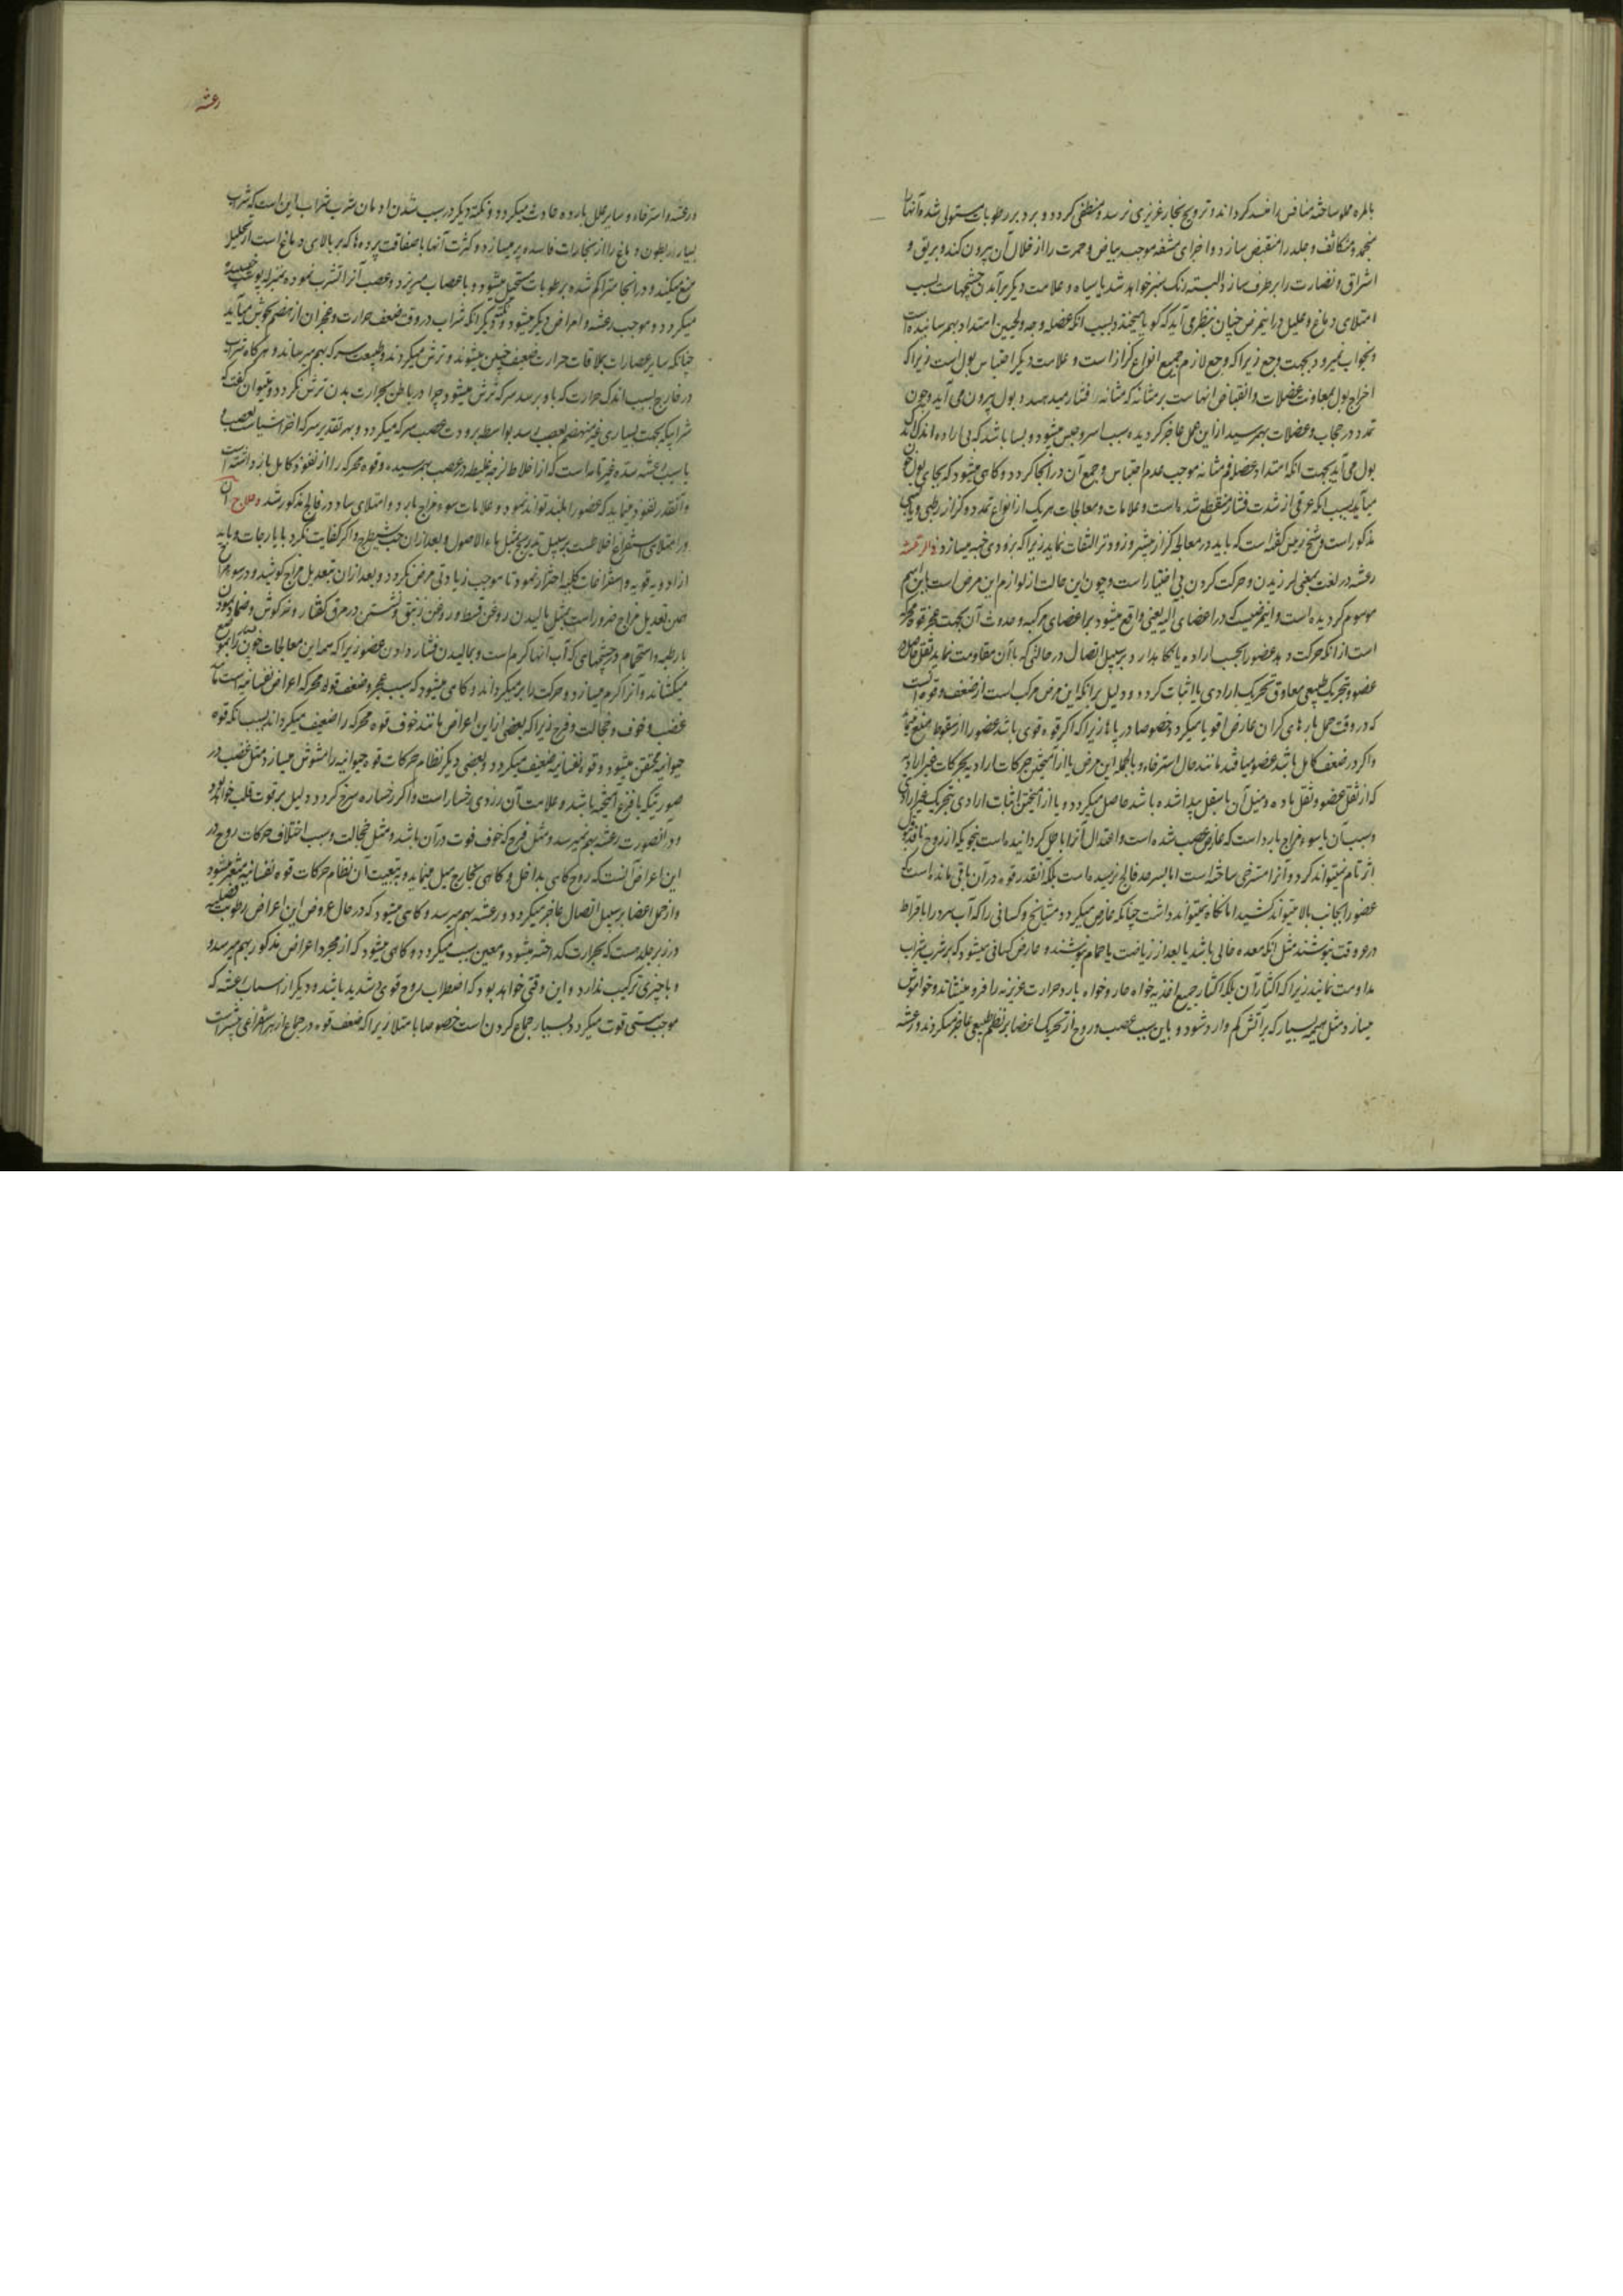 بالمره مملو ساخته متنافس را فسد کرداند و ترویح بخار غریزی نرسد و منطفی کردد و برد بر رطوبات مستولی شده آنها را
منجمد و متکاثف و جلد را منقبض سازد و اجزای مشفه موجب بیاض و حمرت را از خلال آن بیرون کند و بریق و
اشراق و نضارت را برطرف سازد البته رنک سبز خواهد شد یا سیاه و علامت دیکر برآمدن چشمهاست بسبب
امتلای دماغ و علیل در اینمرض چنان بنظر می آید که کویا میخندد بسبب انکه عضله وجه و لحیین امتداد بهم رسانیده است
و بخواب نمیرود بجهت وجع زیرا که وجع لازم جمیع انواع کزاز است و علامت دیکر احتباس بول است زیرا که
اخراج بول بمعاونت عضلات و انقباض انهاست بر مثانه که مثانه را فشار میدهد و بول بیرون می آید و چون
تمدد در حجاب و عضلات بهم رسید از این عمل عاجز کردیده سبب اسر و حبس میشود و بسا باشد که بی اراده اندک اندک
بول می آید بجهت انکه امتداد عضل فم مثانه موجب عدم احتباس و جمع آن در انجا کردد و کاهی میشود که بجای بول خون
میآید بسبب انکه عرقی از شدت فشار منقطع شده است و علامات و معالجات هریک از انواع تمدد و کزاز رطبی و یابسی
مذکور است و شیخ رییس کفته است که باید در معالجه کزاز بیشتر و زودتر التفات نماید زیرا که بزودی خبه میسازد و اما رعشه
رعشه در لغت بمعنی لرزیدن و حرکت کردن بی اختیار است و چون این حالت از لوازم این مرض است باین اسم
موسوم کردیده است و اینمرضیست که در اعضای آلیه یعنی واقع میشود بر اعضای مرکبه و حدوث آن بجهت عجز قوه محرکه
است از انکه حرکت دهد عضو را بحسب اراده یا نکاه بدارد بر سبیل اتصال در حالتی که با آن مقاومت نماید ثقل خاص
عضو و تحریک طبیعی معاوق تحریک ارادی یا اثبات کردد و دلیل بر انکه این مرض مرکب است از ضعف و قوه انست
که در وقت حمل بارهای کران عارض اقویا میکردد خصوصا در پاها زیرا که اکر قوه قوی باشد عضو را از سقوط منع نماید
و اکر در ضعف کامل باشد عضو میافتد مانند حال استرخاء و بالجمله این مرض یا از آمیختن حرکات ارادیه بحرکات غیر ارادیه
که از ثقل عضو و ثقل ماده و میل آن باسفل پیدا شده باشد حاصل میکردد و یا از آمیختن اثبات ارادی بتحریک غیر ارادی
و سبب آن یا سوء مزاج بارد است که عارض عصب شده است و اعتدال آنرا باطل کردانیده است بنحویکه از روح نافذ قبول
اثر تام نمیتواند کرد و آنرا مسترخی ساخته است اما بسر حد فالج نرسیده است بلکه آنقدر قوه در آن باقی مانده است که
عضو را بجانب بالا میتواند کشید اما نکاه نمیتواند داشت چنانکه عارض میکردد مشایخ و کسانی را که آب سرد را بافراط
در غیر وقت بنوشند مثل انکه معده خالی باشد یا بعد از ریاضت یا حمام بنوشند و عارض کسانی میشود که بر شرب شراب
مداومت نمایند زیرا که اکثار آن بلکه اکثار جمیع اغذیه خواه حار و خواه بارد حرارت غریزیه را فرو مینشاند و خاموش
میسازد مثل هیمه بسیار که بر آتش کم وارد شود و باین سبب عصب و روح از تحریک اعضا بر نظم طبیعی عاجز میکردند و رعشه
رعشه
در عشه و استرخاء و سایر علل بارده حادث میکردد و نکته دیکر در سبب شدن ادمان شرب شراب این است که شراب
بسیار بطون دماغ را از بخارات فاسده پر میسازد و کثرت آنها با صفاقت پرده ها که بر بالای دماغ است از تحلیل
منع میکند و در انجا متراکم شده برطوبات مستحیل میشود و باعصاب میریزد و عصب آنرا تشرب نموده بمنزله پوست خیسیده
میکردد و موجب رعشه و امراض دیکر میشود و نکته دیکر انکه شراب در وقت ضعف حرارت و عجز ان از هضم بجوش میآید
چنانکه سایر عصارات بملاقات حرارت ضعیف چنین میشوند و ترش میکردند و طبیعت سرکه بهم میرسانند و هرکاه شراب
در خارج بسبب اندک حرارت که باو برسد سرکه ترش میشود چرا در باطن بحرارت بدن ترش نکردد و میتوان کفت که
شرابیکه بجهت بسیاری غیر منهضم بعصب رسد بواسطه برودت عصب سرکه میکردد و بهر تقدیر سرکه اضر اشیاست بعصب و
یا سبب رعشه سده غیر تامه است که از اخلاط لزجه غلیظه در عصب بهم رسیده و قوه محرکه را از نفوذ کامل باز داشته است
و آنقدر نفوذ مینماید که عضو را بلند تواند نمود و علامات سوء مزاج بارد و امتلای ساد در فالج مذکور شد و علاج آن
در امتلای استفراغ اخلاطست بر سبیل تدریج بمثل ماء الاصول و بعد ازان حب شیطرج و اکر کفایت نکرد بایارجات و باید
از ادویه قویه و استفراغات کلیه احتراز نمود تا موجب زیادتی مرض نکردد و بعد ازان بتعدیل مزاج کوشید و در سوء مزاج
همین تعدیل مزاج ضرور است بمثل مالیدن روغن قسط و روغن زنبق و نشستن در مرق کفتار و خرکوش و ضماد نمودن
بادویه حاره و استحمام در چشمهای که آب آنها کرم است و بمالیدن فشار دادن عضو زیرا که همه این معالجات خون را بموضع
میکشاند و آنرا کرم میسازد و حرکت را بر میکرداند و کاهی میشود که سبب عجز و ضعف قوه محرکه اعراض نفسانیه است مانند
غضب و خوف و خجالت و فرح زیرا که بعضی از این اعراض مانند خوف قوه محرکه را ضعیف میکرداند بسبب انکه قوه
حیوانیه مختنق میشود و قوه نفسانیه ضعیف میکردد و بعضی دیکر نظام حرکات قوه حیوانیه را مشوش میسازد مثل غضب در
صورتیکه با فزع آمیخته باشد و علامت آن زردی رخسار است و اکر رخساره سرخ کردد دلیل بر قوت قلب خواهد بود
و در انصورت رعشه بهم نمیرسد و مثل فرح که خوف فوت در آن باشد و مثل خجالت و سبب اختلاف حرکات روح در
این اعراض آنست که روح کاهی بداخل و کاهی بخارج میل مینماید و بتبعیت آن نظام حرکات قوه نفسانیه متغیر میشود
و از حمل اعضا بر سبیل اتصال عاجز میکردد و رعشه بهم میرسد و کاهی میشود که در حال عروض این اعراض رطوبت فضلیه
در زیر جلد هست که بحرارت کداخته میشود و معین سبب میکردد و کاهی میشود که از مجرد اعراض مذکور بهم میرسد و
و با چیزی ترکیب ندارد و این وقتی خواهد بود که اضطراب روح قوی شدید باشد و دیکر از اسباب رعشه که
موجب سستی قوت میکردد بسیار جماع کردن است خصوصا با متلا زیرا که ضعف قوه در جماع از هر استفراغی بیشتر است